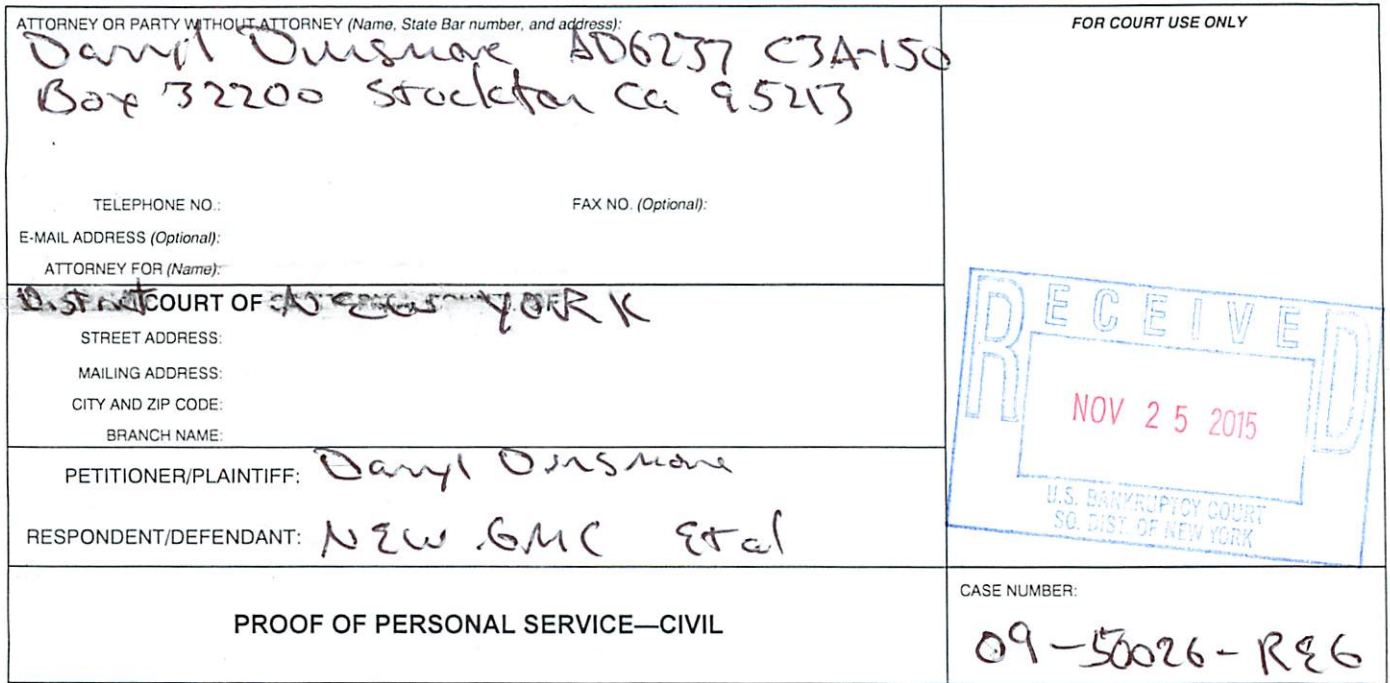 ATTORNEY OR PARTY WITHOUT ATTORNEY (Name, State Bar number, and address):
Darryl Dunsmore AD6237 C3A-150
Box 32200 Stockton Ca 95213
TELEPHONE NO.:
FAX NO. (Optional):
E-MAIL ADDRESS (Optional):
ATTORNEY FOR (Name):
District COURT OF NEW YORK
STREET ADDRESS:
MAILING ADDRESS:
CITY AND ZIP CODE:
BRANCH NAME:
PETITIONER/PLAINTIFF: Darryl Dunsmore
RESPONDENT/DEFENDANT: NEW GMC Etal
PROOF OF PERSONAL SERVICE—CIVIL
FOR COURT USE ONLY
RECEIVED
NOV 25 2015
U.S. BANKRUPTCY COURT
SO. DIST. OF NEW YORK
CASE NUMBER:
09-50026-REG